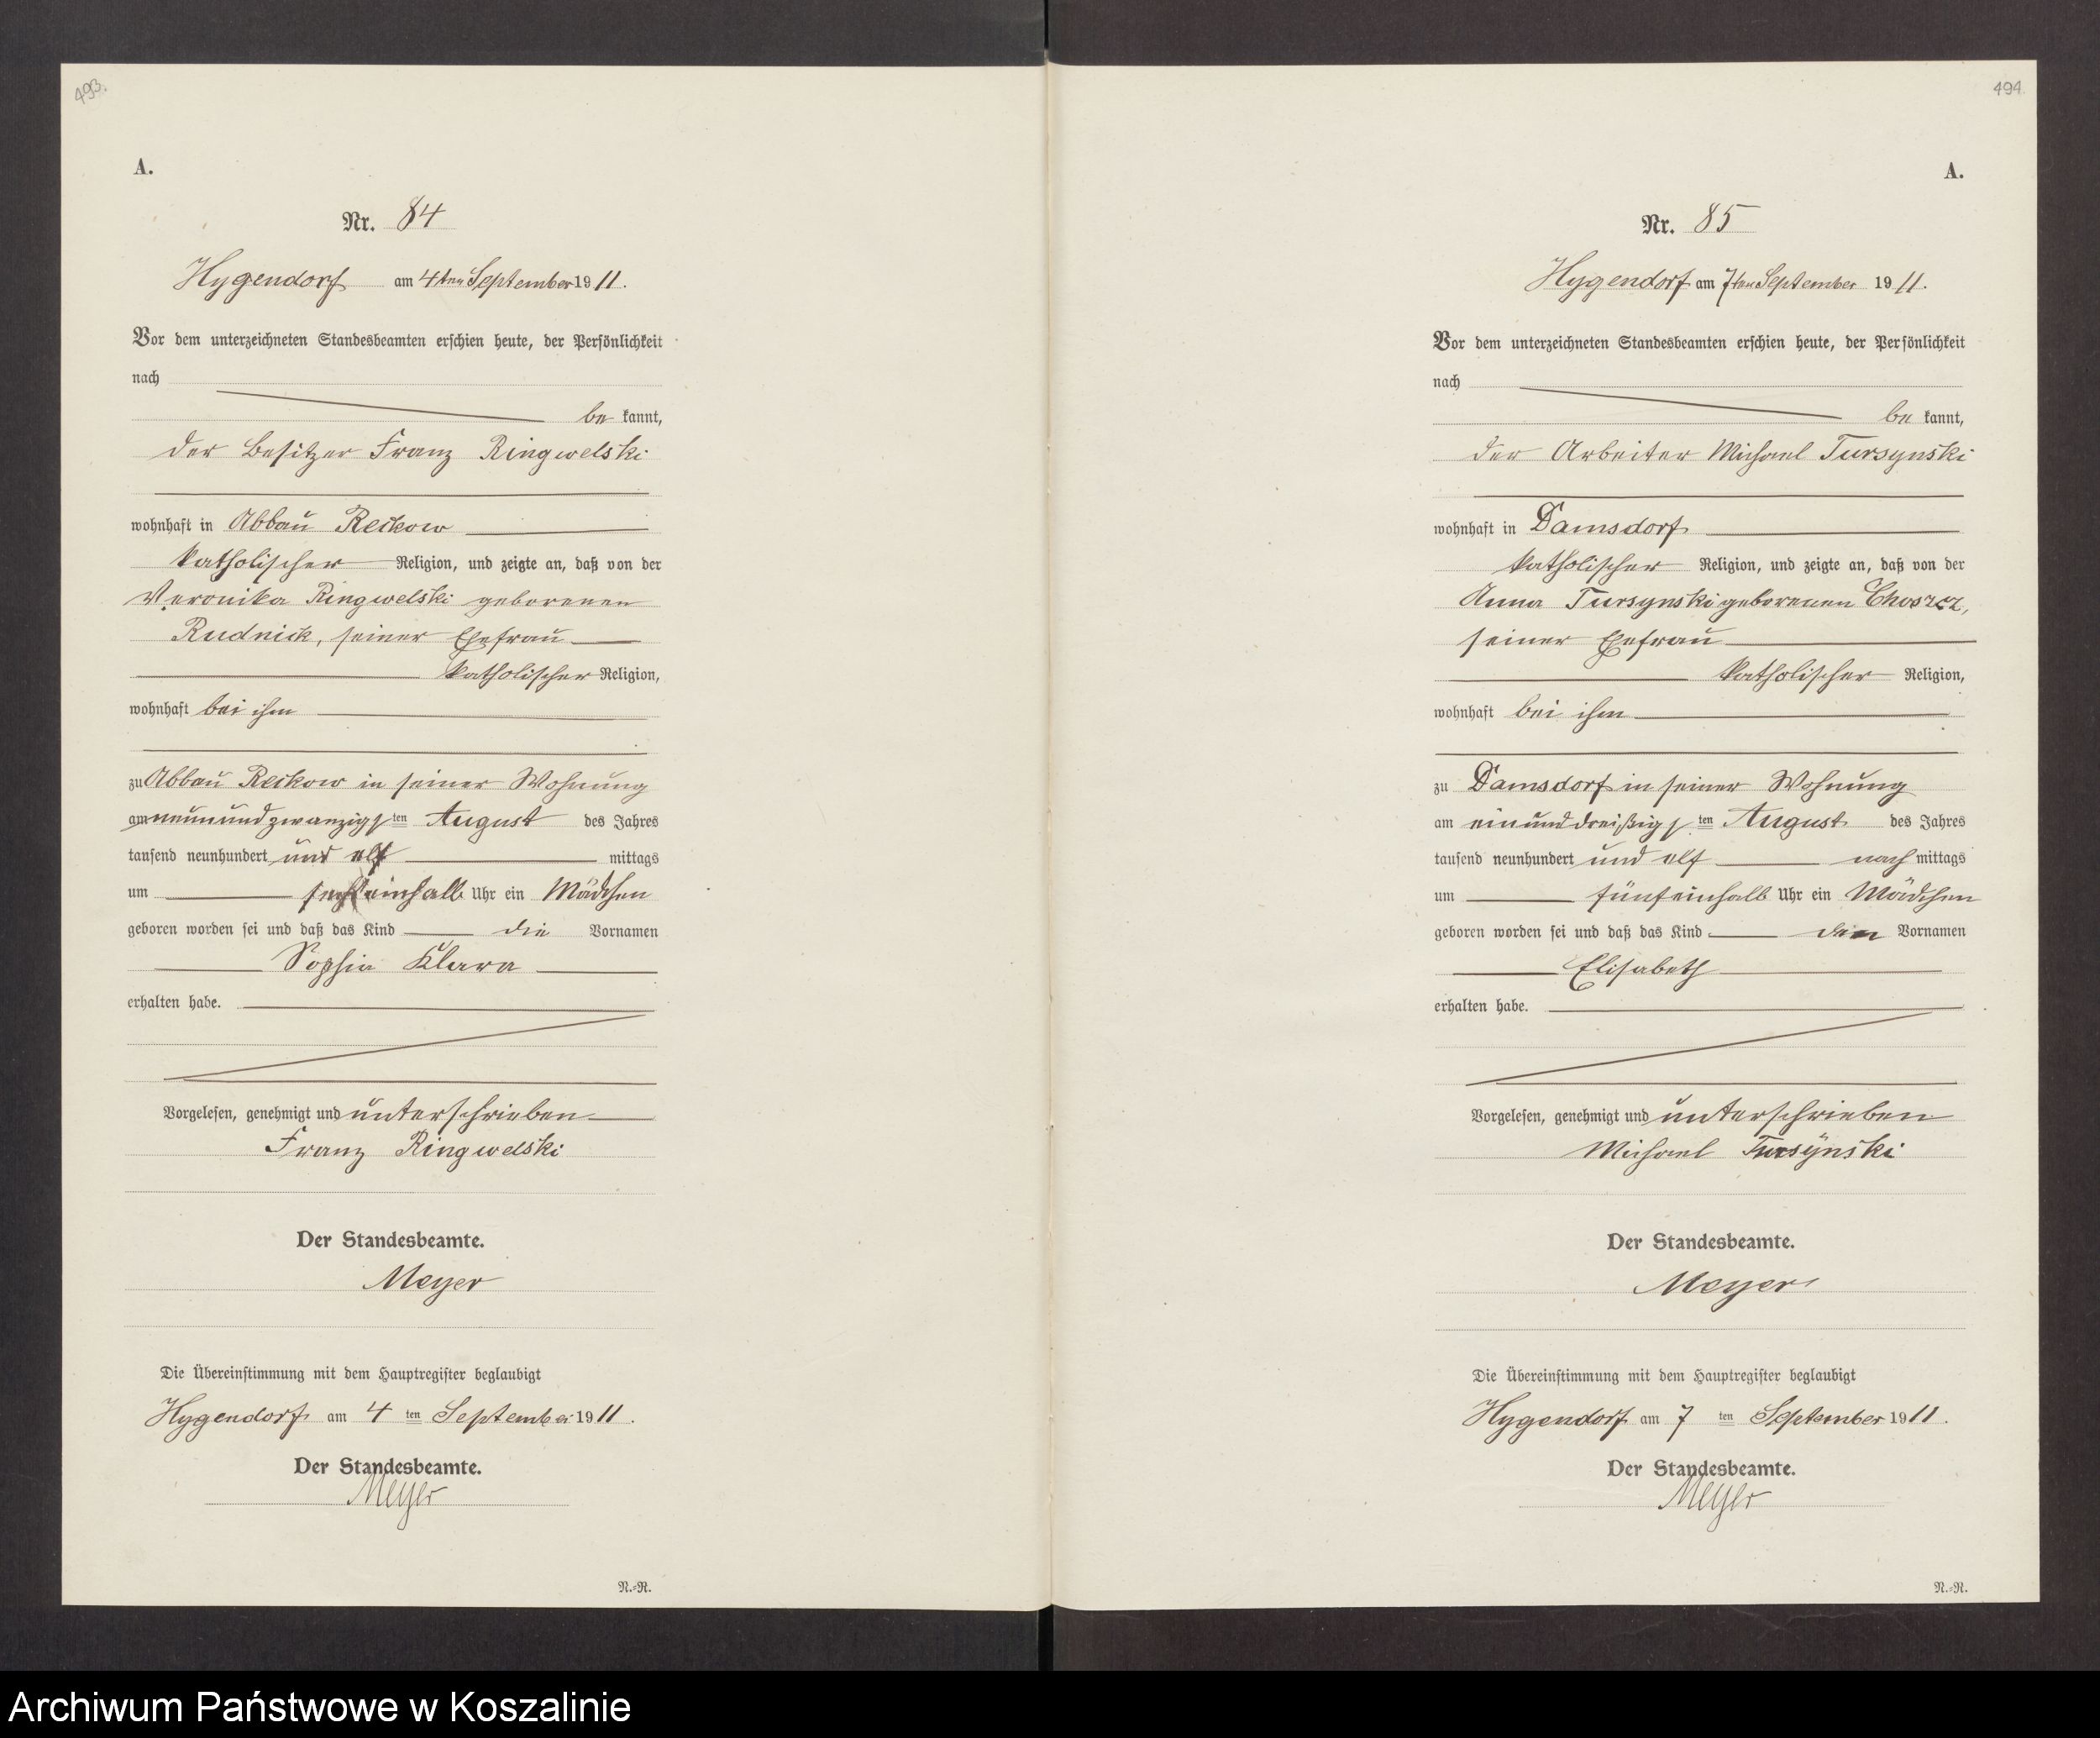 493.
A.
Nr. 84
Hygendorf am 4ten September 1911.
Vor dem unterzeichneten Standesbeamten erschien heute, der Persönlichkeit
nach
be kannt,
der Besitzer Franz Ringwelski
wohnhaft in Abbau Reckow
katholischer Religion, und zeigte an, daß von der
Veronika Ringwelski geborenen
Rudnick, seiner Ehefrau
katholischer Religion,
wohnhaft bei ihm
zu Abbau Reckow in seiner Wohnung
am neunundzwanzigsten August des Jahres
tausend neunhundert und elf mittags
um einhalb Uhr ein Mädchen
geboren worden sei und daß das Kind die Vornamen
Sophie Klara
erhalten habe.
Vorgelesen, genehmigt und unterschrieben
Franz Ringwelski
Der Standesbeamte.
Meyer
Die Übereinstimmung mit dem Hauptregister beglaubigt
Hygendorf am 4 ten September 1911.
Der Standesbeamte.
Meyer
N.-R.
494
A.
Nr. 85
Hygendorf am 7ten September 1911.
Vor dem unterzeichneten Standesbeamten erschien heute, der Persönlichkeit
nach
be kannt,
der Arbeiter Michael Tursynski
wohnhaft in Damsdorf
katholischer Religion, und zeigte an, daß von der
Anna Tursynski geborenen Choszcz,
seiner Ehefrau
katholischer Religion,
wohnhaft bei ihm
zu Damsdorf in seiner Wohnung
am einunddreißigsten August des Jahres
tausend neunhundert und elf nach mittags
um fünfeinhalb Uhr ein Mädchen
geboren worden sei und daß das Kind den Vornamen
Elisabeth
erhalten habe.
Vorgelesen, genehmigt und unterschrieben
Michael Tursÿnski
Der Standesbeamte.
Meyer
Die Übereinstimmung mit dem Hauptregister beglaubigt
Hygendorf am 7 ten September 1911.
Der Standesbeamte.
Meyer
N.-R.
Archiwum Państwowe w Koszalinie